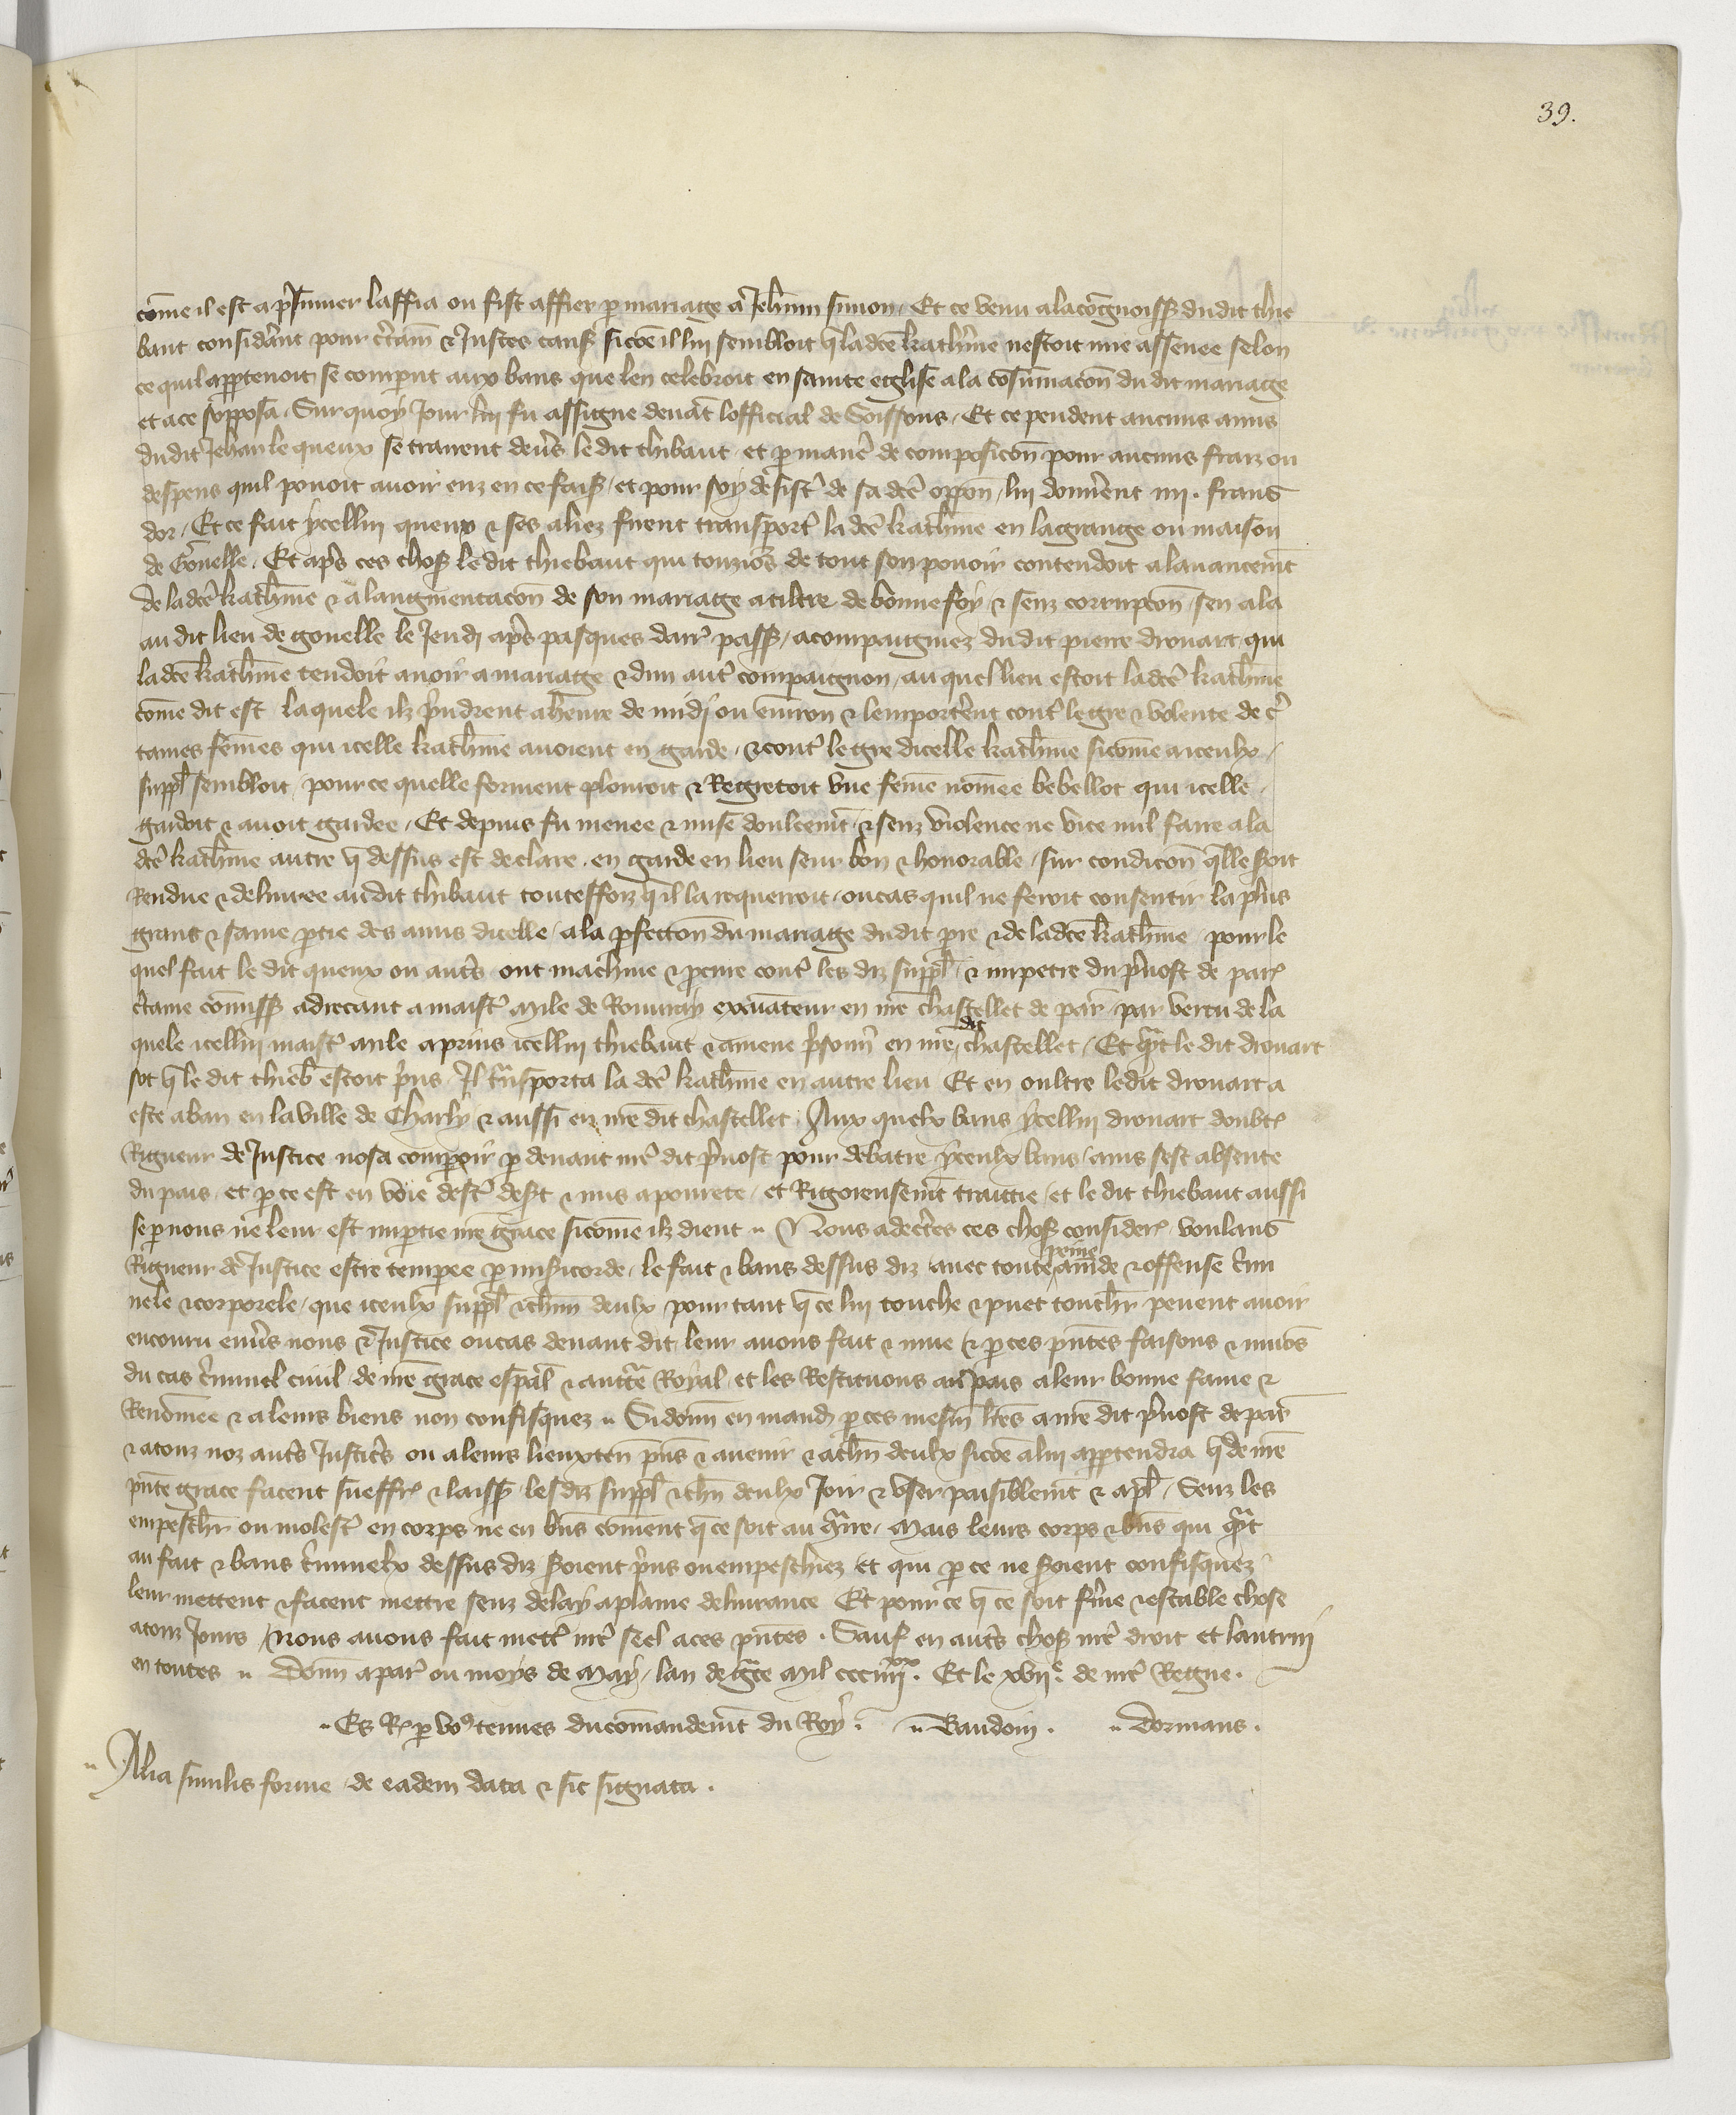 39.
cõme il est a p̃sumer laffia ou fist affier p mariage a Jehñnin simon / Et ce venu a la cõgnoiss̃ dudit thie
baut consider̃ant pour c̃taĩñ & Justes caus̃ sicõe il lui sembloit q̃ ladcẽ kath̃ine nestoit mie assenee selon
ce quil appтenoit se comparut aux bans que len celebroit en sainte eglise a la cõsũmacõn du dit mariage
et a ce sopposa . Sur quoy Jour lui fu assigne deuãt lofficial de Soissons / Et ce pendent aucuns amis
dudit Jehan le queux se trairent deũs le dit thibaut / et p manĩe de composicõn pour aucuns fraiz ou
despens quil pouoit auoir euz en ce fais̃ / et pour soy desist̃ de sa dcẽ oppõn / lui donnẽrent iiii . frans
dor / Et ce fait ycellui queux & ses aliez firent transport̃ la dcẽ kath̃ine en la grange ou maison
de Gonelle / Et ap̃s ces chos̃ le dit thiebaut qui touzio's de tout son pouoir contendoit a lauancem̃t
de la dcẽ kath̃ine & a laugmentacõn de son mariage a tiltre de bonne foy & senz corrupcõn / sen ala
au dit lieu de gonelle le Jeudi ap̃s pasques darr̃ pass̃ / acompaigniez dudit pierre drouart qui
ladcẽ kath̃ine tendoit auoir a mariage & dun aut̃ compaignon / au quel lieu estoit ladcẽ kath̃ine
cõme dit est laquele ilz p̃ndrent a heure de midi ou enuiron & lemportẽrent cont̃ le gre & volente de c̃
taines fẽmes qui icelle kath̃ine auoient en garde / & cont̃ le gre dicelle kath̃ine sicõme a iceulx /
suppl̃ sembloit / pour ce quelle forment plouroit & Regretoit vne fẽme nõmee bebellot qui icelle /
gardoit & auoit gardee / Et depuis fu menee & mise doulcem̃t / & senz violence ne vice nul faire a la
dcẽ kath̃ine autre q̃ dessus est declare / en garde en lieu seur bon & honorable / sur condicõn q̃lle soit
Rendue & deliuree audit thibaut touteffoiz q̃ il la requerroit / ou cas quil ne feroit consentir la plus
grant & saine ptie des amis dicelle / a la pfeccõn du mariage dudit p̃re & de ladcẽ kath̃ine pour le
quel fait le dit queux ou aut̃s ont machine & pcure cont̃ les diz suppl̃ / & impetre du p̃uost de par̃
c̃taine com̃iss̃ adrecant a maist̃ Mile de Rouuray examĩateur en nr̃e chastellet de par̃ / par vertu de la
quele icellui maist̃ mile a prins icellui thiebaut & amene p̃sonñ en nr̃e dit chastellet / Et q̃nt le dit drouart
sot q̃ le dit thieb̃ estoit p̃ns / Il t̃nsporta la dcẽ kath̃ine en autre lieu Et en oultre ledit drouart a
este a ban en la ville de Charly & aussi en nr̃e dit chastellet . Aux quelx bans ycellui drouart doubt̃
Rigueur de Justice nosa comparoir p deuant nr̃e dit p̃uost pour debatre yceulx bans / ains sest absente
du pais / et p ce est en voie dest̃ des̃t & mis a pourete / et Rigoreusem̃t traittie / et le dit thiebaut aussi
se p nous ne leur est imptie nr̃e grace sicõme ilz dient . Nous adecer̃tes ces chos̃ consider̃ voulans
Rigueur de Justice estre tempree p mis̃icorde / le fait & bans dessus diz auec toute peine am̃de & offense c̃imi
nele & corporele / que iceulx suppl̃ & chñn deulx pour tant q̃ ce lui touche & puet touch̃r peuent auoir
encouru enũs nous & Justice ou cas deuant dit leur auons fait & mue & p ces p̃ntes faisons & muõs
du cas c̃iminel ciuil / de nr̃e grace esp̃al & auct̃e Royal / et les Restituons au pais a leur bonne fame &
Renõmee & a leurs biens non confisquez . Si donñ en mand̃ p ces mesm̃ lr̃es a nr̃e dit p̃uost de par̃
& a touz noz aut̃s Justic̃s ou a leurs lieuxteñ p̃ns & auenir & a chñ deulx sicõe a lui appтendra q̃ de nr̃e
p̃nte grace facent sueffr̃ & laiss̃ les diz suppl̃ & chñ deulx Joir & vser paisiblem̃t & a pl̃ / Senz les
empesch̃r ou molest̃ en corps ne en biẽs cõment q̃ ce soit au 9t̃re / Mais leurs corps & biẽs qui q̃nt
au fait & bans c̃iminelx dessus diz soient p̃ns ou empeschiez et qui p ce ne soient confisquez
leur mettent & facent mettre senz delay a plaine deliurance Et pour ce q̃ ce soit ferme & estable chose
a touz Jours / Nous auons fait mett̃ nr̃e seel a ces p̃ntes . Sauf en aut̃s chos̃ nr̃e droit et lautrui
en toutes . Donñ a par̃ ou moys de May / lan de grãce Mil ccciiiixx . Et le xviie . de nr̃e Regne .
Es R̃ p vo9 tenues du comandem̃t du Roy . Baudoin . Dormans .
Alia similis forme de eadem data & sic signata .